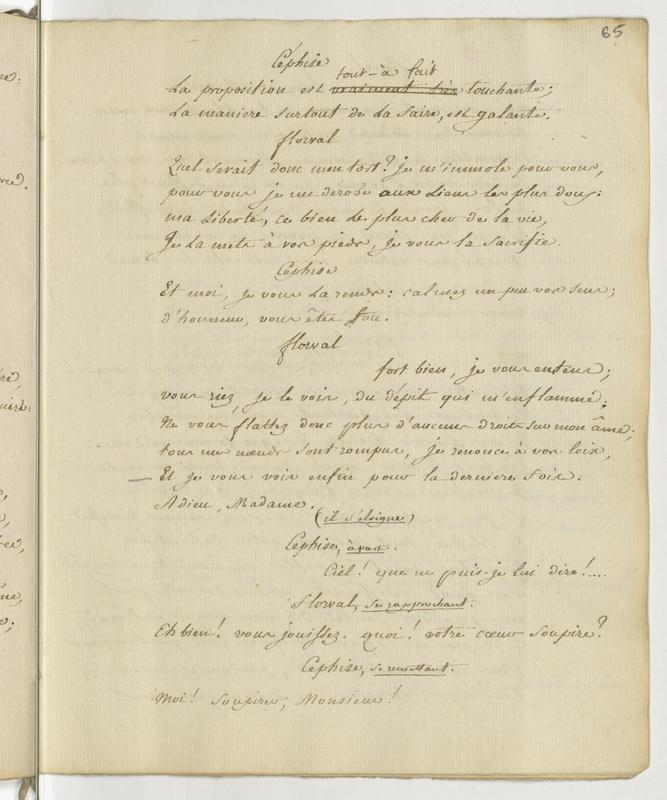 65
Céphise
tout-à fait
La proposition est vraiment très touchante;
La maniere surtout de la faire, est galante.
florval
Quel serait donc mon tort? je m'immole pour vous,
pour vous je me dérobe aux liens les plus doux:
ma Liberté, ce bien le plus cher de la vie,
Je la mets à vos pieds, je vous la sacrifie.
Cephise
Et moi, je vous la rends: calmez un peu vos sens;
d'honneur, vous êtes fou.
florval
fort bien, je vous entens;
vous riez, je le vois, du dépit qui m'enflamme;
Ne vous flattez donc plus d'aucuns droits sur mon âme;
tous mes nœuds sont rompus, je renonce à vos loix,
Et je vous vois enfin pour la derniere fois.
Adieu, Madame.
(il s'éloigne)
Cephise, à part.
Ciel! que ne puis-je lui dire!....
Florval, se rapprochant.
Eh bien! vous jouissez. quoi! votre cœur soupire?
Cephise, se remettant.
Moi! Soupirer, Monsieur!